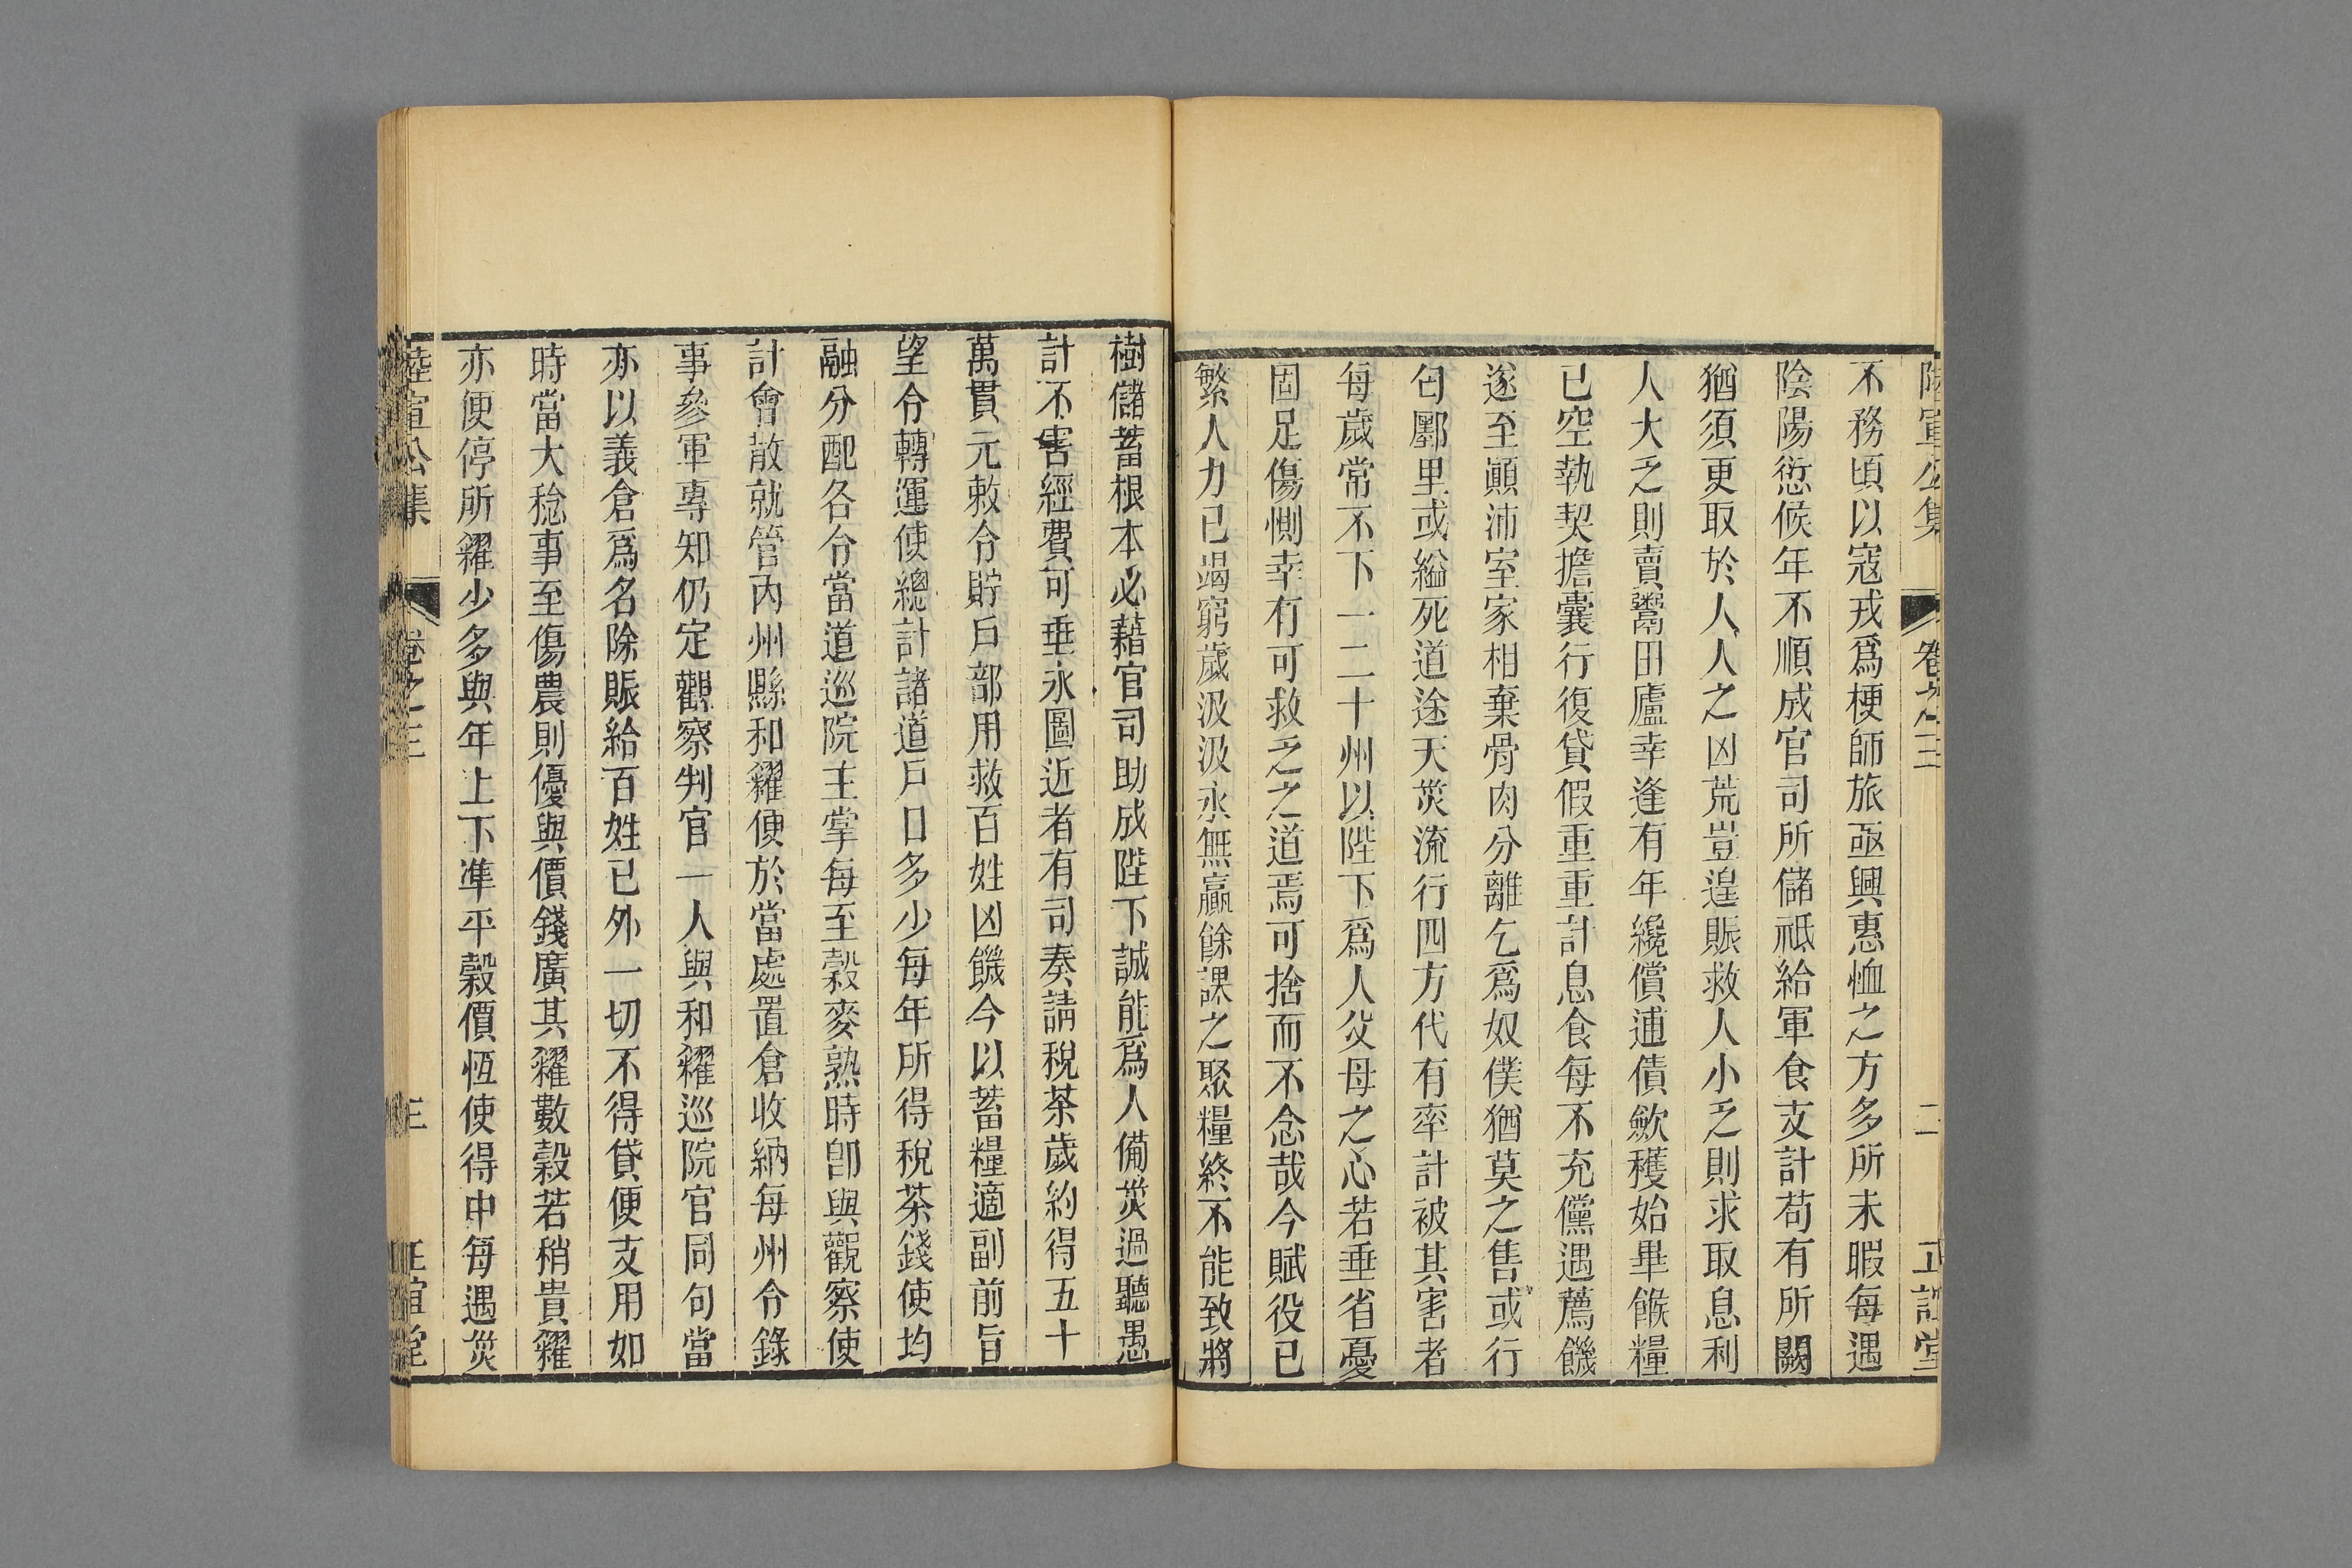 陸宣公集 卷之三 二 正誼堂
不務頃以寇戎爲梗師旅亟興惠恤之方多所未暇每遇
陰陽愆候年不順成官司所儲祗給軍食支計苟有所闕
猶須更取於人人之凶荒豈遑賑救人小乏則求取息利
人大乏則賣鬻田廬幸逢有年纔償逋債歛穫始畢餱糧
已空執契擔囊行復貸假重重計息食每不充儻遇薦饑
遂至顚沛室家相棄骨肉分離乞爲奴僕猶莫之售或行
匄鄽里或縊死道途天災流行四方代有率計被其害者
每歲常不下一二十州以陛下爲人父母之心若垂省憂
固足傷惻幸有可救乏之道焉可捨而不念哉今賦役已
繁人力已竭窮歲汲汲永無贏餘課之聚糧終不能致將
樹儲蓄根本必藉官司助成陛下誠能爲人備災過聽愚
計不害經費可垂永圖近者有司奏請稅茶歲約得五十
萬貫元敕令貯戶部用救百姓凶饑今以蓄糧適副前旨
望令轉運使總計諸道戶口多少每年所得稅茶錢使均
融分配各令當道巡院主掌每至穀麥熟時卽與觀察使
計會散就管內州縣和糴便於當處置倉收納每州令錄
事參軍專知仍定觀察判官一人與和糴巡院官同句當
亦以義倉爲名除賑給百姓已外一切不得貸便支用如
時當大稔事至傷農則優與價錢廣其糴數穀若稍貴糴
亦便停所糴少多與年上下準平穀價恆使得中每遇災
陸宣公集 卷之三 三 正誼堂